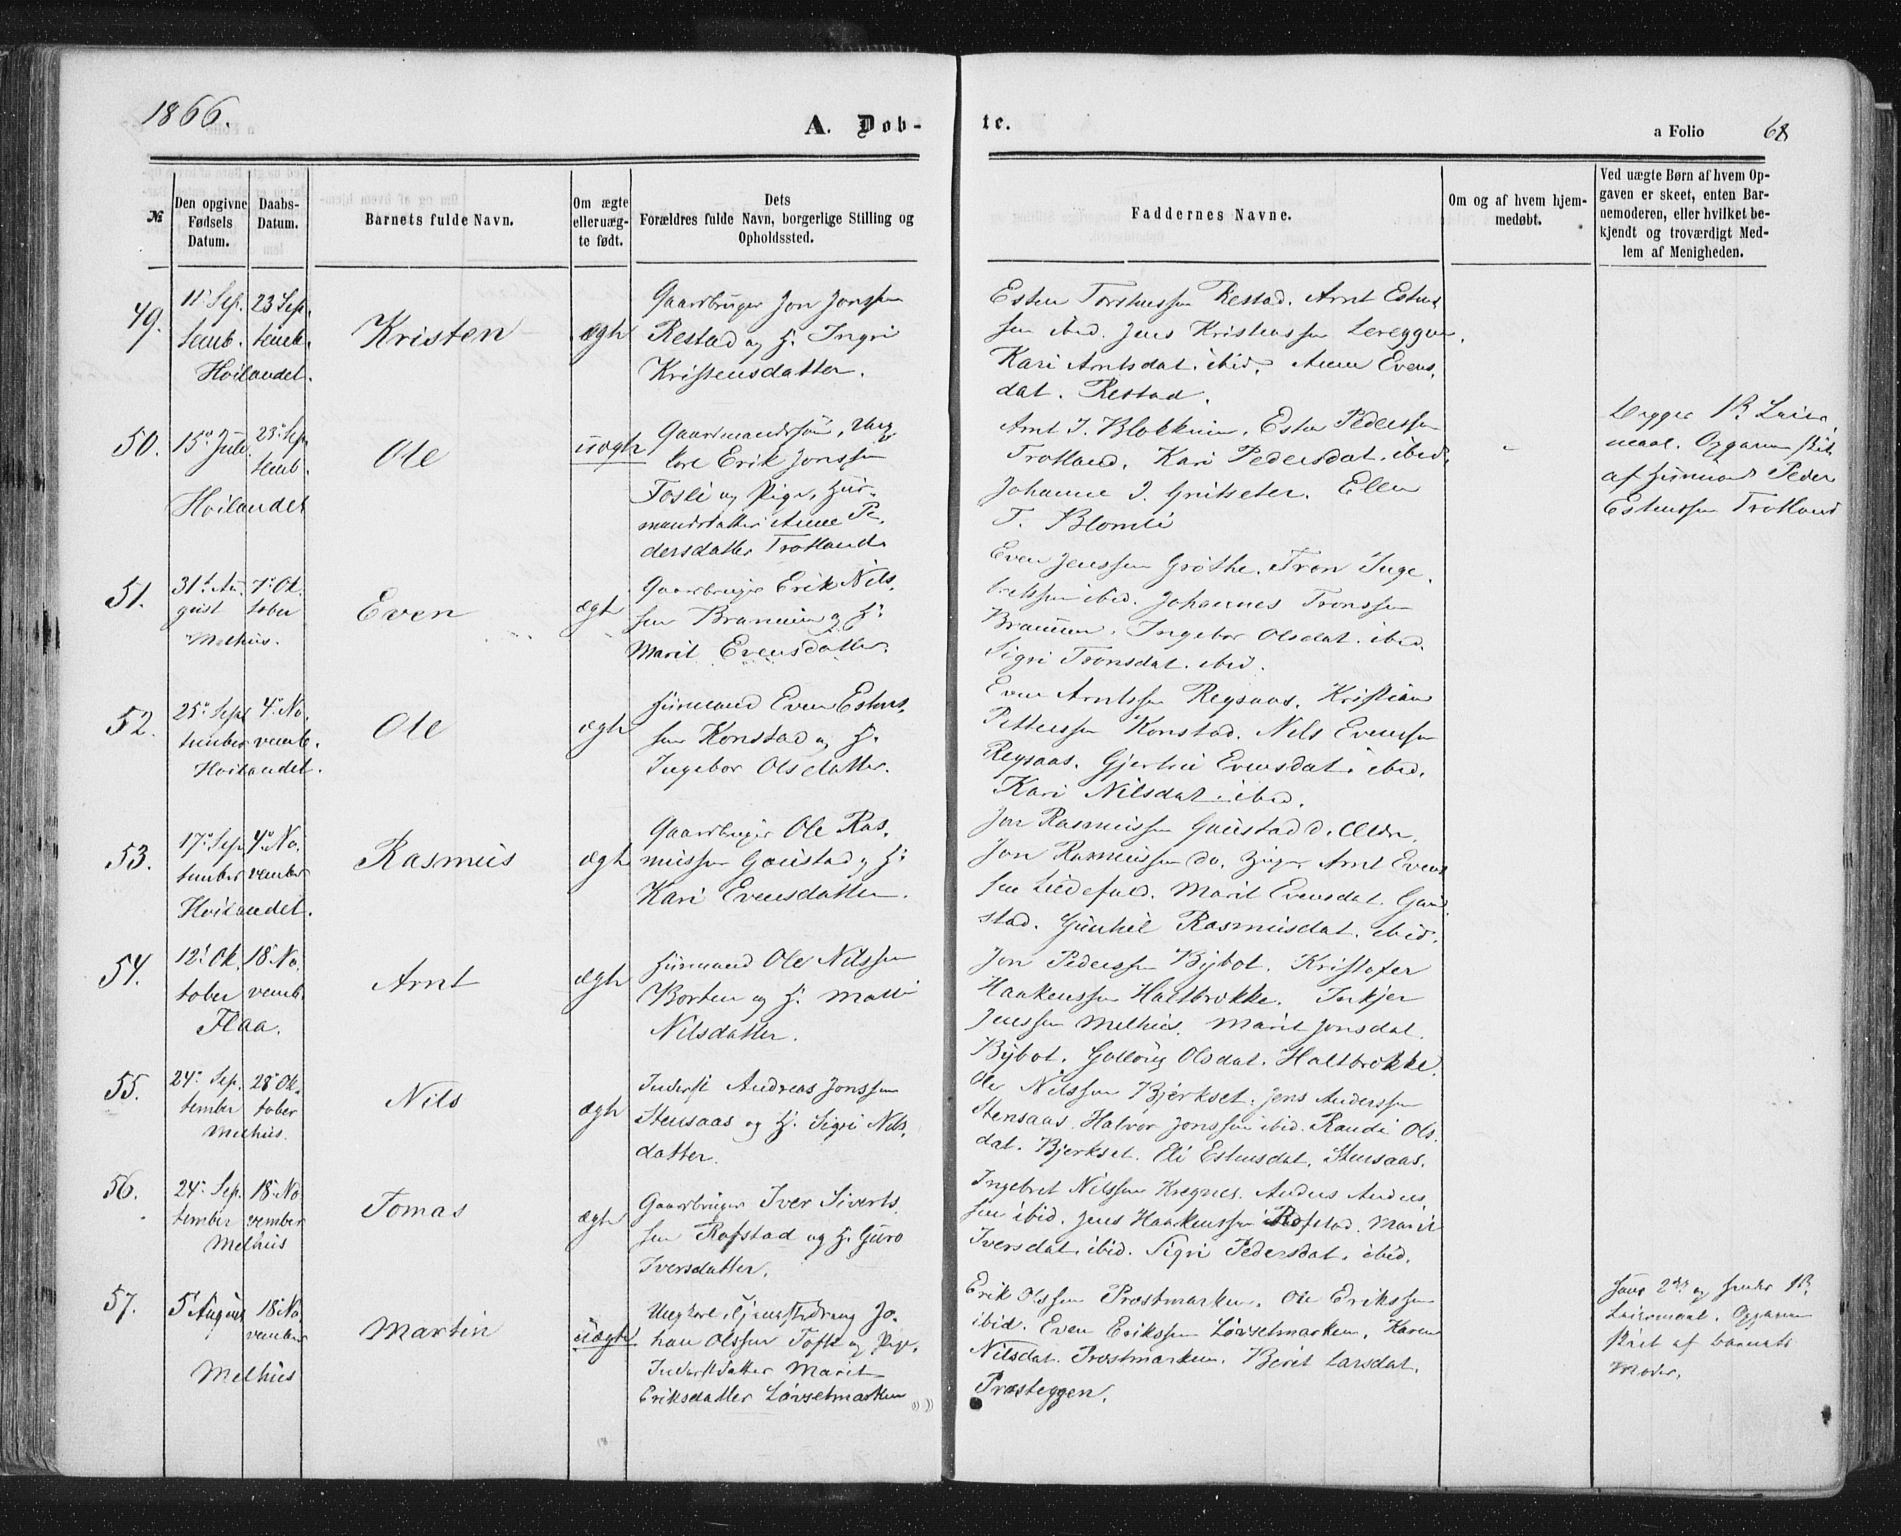 1866.
A. Døb-
te.
a Folio 68
№
Den opgivne Fødsels Datum.
Daabs-Datum.
Barnets fulde Navn.
Om ægte eller uæg-te født.
Dets Forældres fulde Navn, borgerlige Stilling og Opholdssted.
Faddernes Navne.
Om og af hvem hjem-medøbt.
Ved uægte Børn af hvem Op-gaven er skeet, enten Bar-nemoderen, eller hvilket be-kjendt og troværdigt Med-lem af Menigheden.
49.
11' Sep. 23 Sep.
temb. temb.
Høilandet.
Kristen
ægte
Gaardbruger Jon Jonssen
Restad og H. Ingri
Kristensdatter.
Esten Torstenssen Restad. Arnt Estens
sen ibid. Jens Kristenssen Lereggen.
Kari Arntsdat. ibid. Anne Evens
dat. Restad.
50.
15' Juli 23' Sep
temb.
Høilandet
Ole
uægte
Gaardmandssøn, Ung
karl Erik Jonssen
Fosli og Pige, Hus-
mandsdatter Anne Pe
dersdatter Trotland.
Arnt J. Blekkum. Esten Pederssen
Trotland. Kari Pedersdat. ibid.
Johanne J. Gritseter. Ellen
T. Blomli
Begges 1ste Leier
maal. Opgaven skeet
af Husmand Peder
Estenssen Trotland
51.
31' Au 7' Ok
gust tober
Melhus.
Even
ægte
Gaardbruger Erik Nils
sen Bramem og H.
Marit Evensdatter.
Even Jenssen Grøthe. Tron Inge
bretssen ibid. Johannes Tronssen
Ingebor Olsdat. ibid.
Sigri Tronsdat. ibid.
52.
25' Sept 4' No.
tember vemb.
Høilandet.
Ole
ægte
Husmand Even Estens
sen Konstad og H.
Ingebor Olsdatter.
Even Arntssen Regsaas. Kristian
Petterssen Konstad. Nils Evenssen
Regsaas. Gjertru Evensdat. ibid.
Kari Nilsdat. ibid.
53.
17' Sep 4' No.
tember vember
Høilandet.
Rasmus
ægte
Gaardbruger Ole Ras.
mussen Gaustad og H.
Kari Evensdatter.
Jon Rasmussen Gaustad d. Ældre.
Jon Rasmussen do. Yngre Arnt Evens
Marit Evensdat. Gau
stad. Gunhil Rasmusdat. ibid.
54.
12' Ok. 18' No.
tober vemb.
Flaa.
Arnt
ægte
Husmand Ole Nilssen
Borten og H. Malli
Nilsdatter.
Jon Pederssen Bybot. Kristofer
Haakenssen Haltbrekke.
Jenssen Melhus. Marit Jonsdat.
Bybot. Gollaug Olsdat. Haltbrekke.
55.
24' Sep. 28' Ok-
tember tober
Melhus.
Nils
ægte
Inderst Andreas Jonssen
Stensaas og H. Sigri Nils.
datter.
Ole Nilssen Bjerkset. Jens Anderssen
Stensaas. Halvor Jonssen ibid. Randi Ols.
dat. Bjerkset. Eli Estensdat. Stensaas.
56.
24' Sep. 18' No
tember vember
Melhus
Tomas
ægte
Gaardbruger Iver Siverts.
sen Rofstad og H. Guro
Iversdatter.
Ingebret Nilssen Kregnes. Anders Anders
sen ibid. Jens Haakenssen Rofstad. Marit
Iversdat. ibid. Sigri Pedersdat. ibid.
57.
5' August 18' No
vember
Melhus
Martin
uægte
Ungkarl, Tjenestedreng Jo.
han Olssen Tofte og Pige,
Inderstdatter Marit
Eriksdatter Løvsetmarken
Erik Olssen Prostmarken. Ole Erikssen
ibid. Even Erikssen Løvsetmarken. Karen
Nilsdat. Prostmarken. Berit Larsdat.
Præsteggen.
Hans 2det og hendes 1ste
Leiermaal. Opgaven
skeet af barnets
Moder.